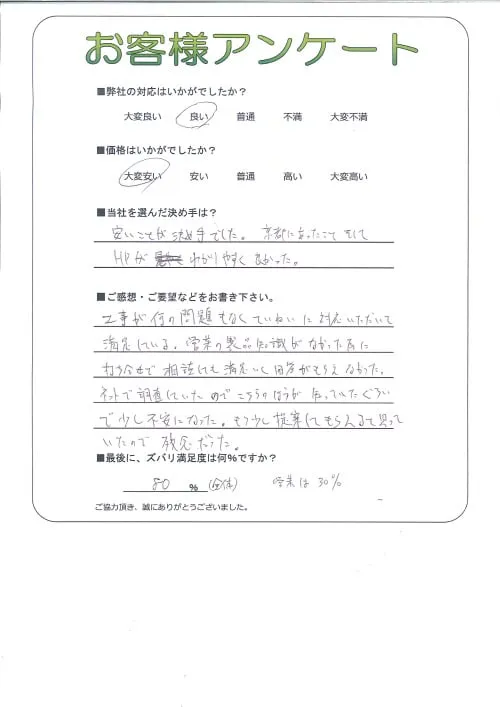 お客様アンケート
■弊社の対応はいかがでしたか？
大変良い 良い 普通 不満 大変不満
■価格はいかがでしたか？
大変安い 安い 普通 高い 大変高い
■当社を選んだ決め手は？
安いことが決め手でした。京都にあったこと そして
HPが わかりやすく 良かった。
■ご感想・ご要望などをお書き下さい。
工事が何の問題もなくていねいに対応いただいて
満足している。営業の製品知識がなかった為に
打ち合せで相談しても満足いく回答がもらえなかった。
ネットで調査していたのでこちらのほうが知っていたぐらい
で少し不安になった。もう少し提案してもらえると思って
いたので残念だった。
■最後に、ズバリ満足度は何％ですか？
80 ％ (全体) 営業は30%
ご協力頂き、誠にありがとうございました。